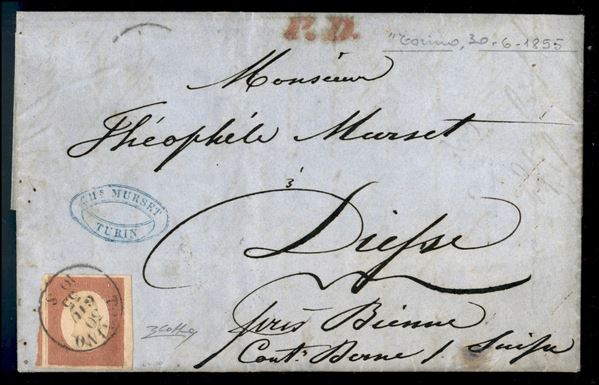 P.D.
"Torino, 30-6-1855
Monsieur
Théophile Murset
à
Diesse
près Bienne
Cont. Berne / Suisse
CHS MURSET
TURIN
TORINO
30
GIU
55
10 S